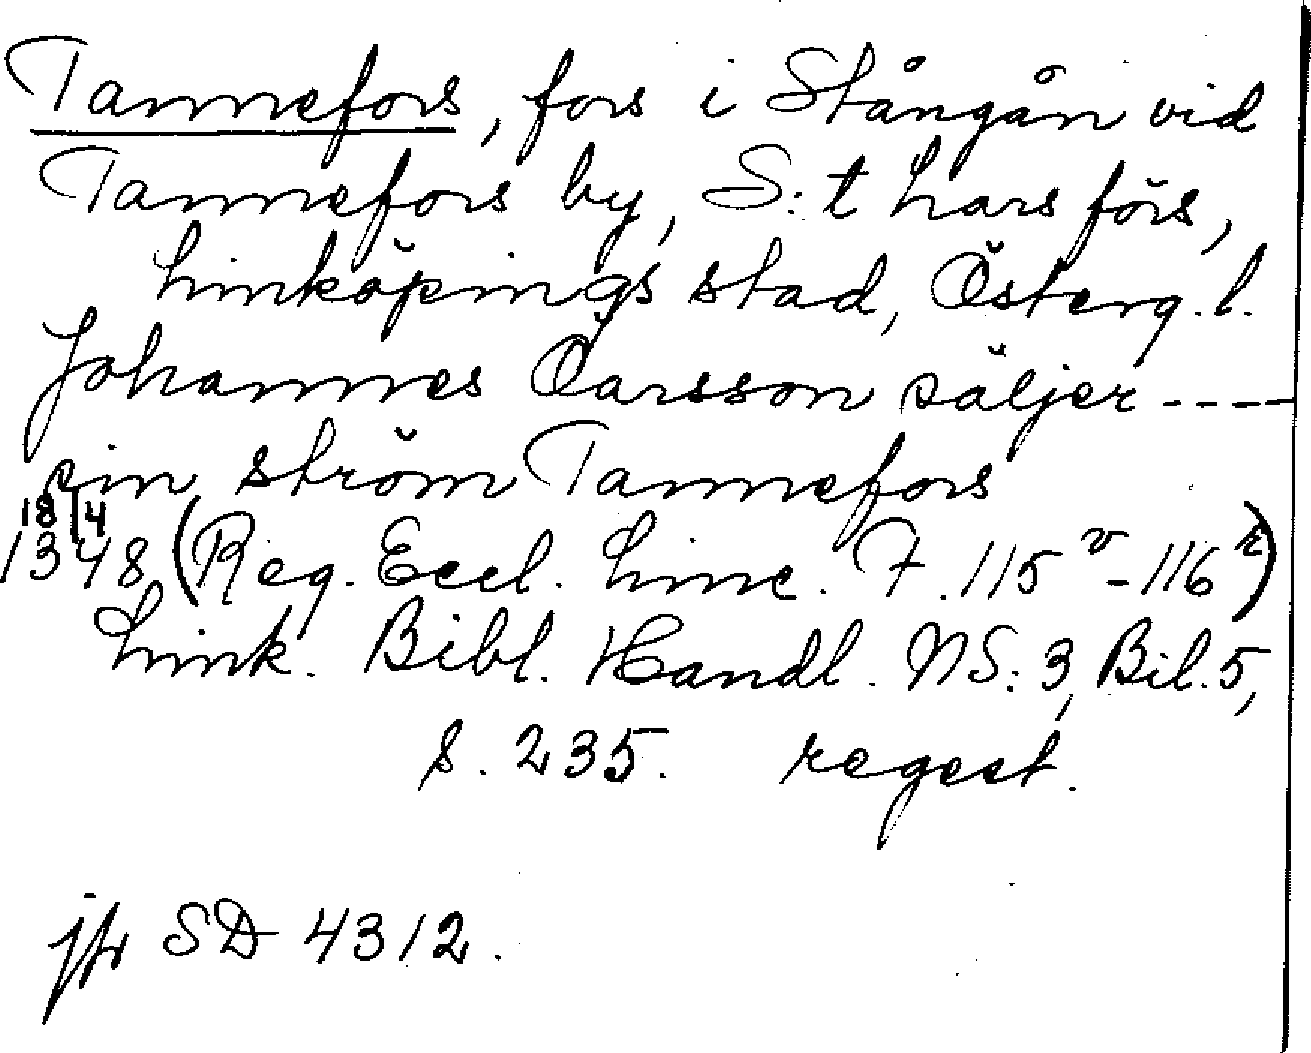 Tannefors, fors i Stångån vid
Tannefors by, S:t Lars förs,
Linköpings stad, Österg. l.
Johannes Öarsson säljer ----
sin ström Tannefors
18/4
1348 (Reg. Eccl. Linc. F. 115 v - 116 r)
Link. Bibl. Handl. NS: 3, Bil. 5,
s. 235. regest.
jfr SD 4312.